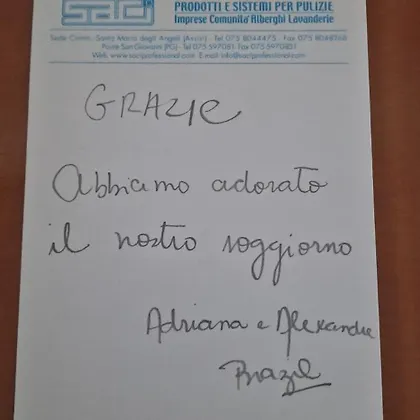 saci
PRODOTTI E SISTEMI PER PULIZIE
Imprese Comunità Alberghi Lavanderie
Sede Centro: Santa Maria degli Angeli (Assisi) - Tel. 075 8044475 - Fax 075 8048768
Ponte San Giovanni (PG) - Tel. 075 597081 - Fax 075 5970851
Web. www.saciprofessional.com E.mail info@saciprofessional.com
GRAZIE
Abbiamo adorato
il nostro soggiorno
Adriana e Alexandre
Brazil